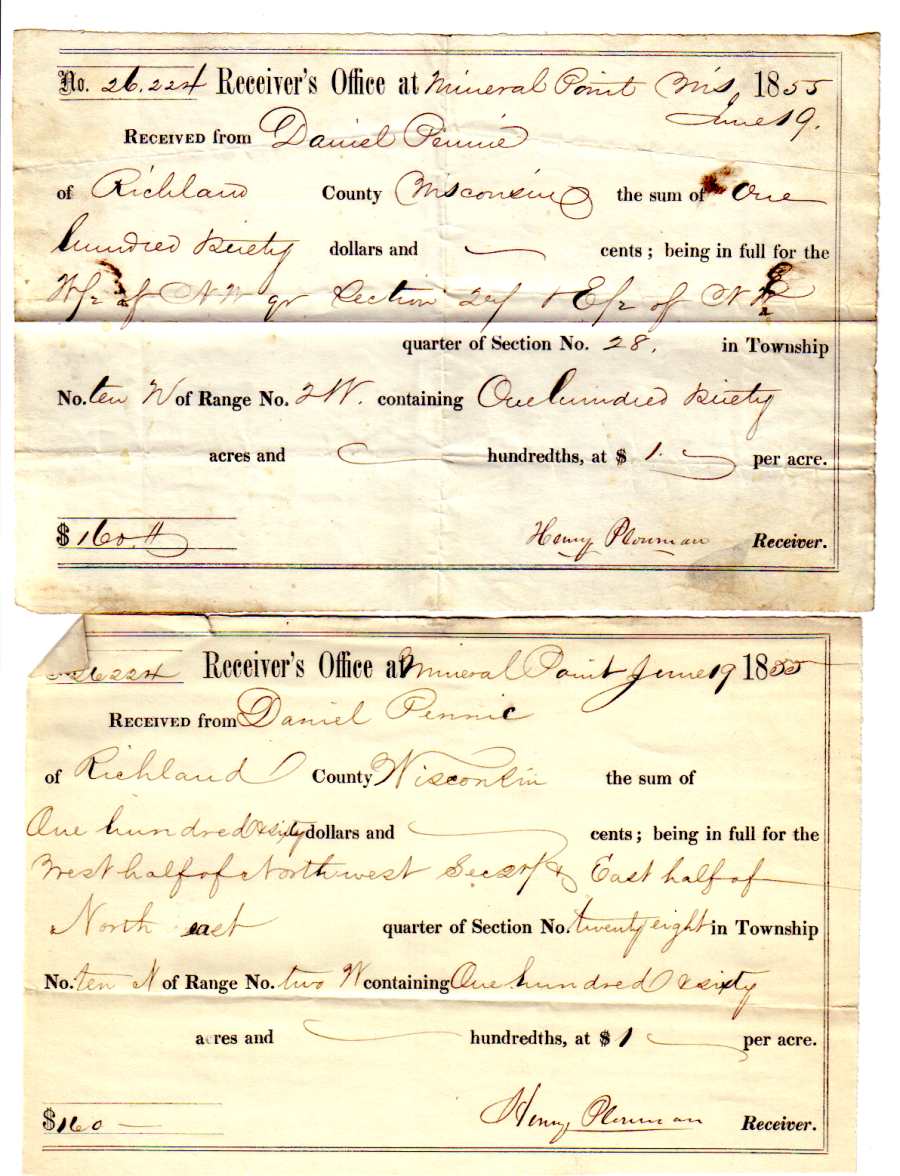 No. 26.224 Receiver's Office at Mineral Point Wis, 1855
June 19.
RECEIVED from Daniel Pennie
of Richland County Wisconsin the sum of One
hundred sixty dollars and cents; being in full for the
W/2 of N W qr Section 27 & E/2 of N
quarter of Section No. 28, in Township
No. ten N of Range No. 2 W. containing One hundred sixty
acres and hundredths, at $ 1. per acre.
$ 160.
Henry Plowman Receiver.
26224 Receiver's Office at Mineral Point June 19 1855
RECEIVED from Daniel Pennie
of Richland County Wisconsin the sum of
One hundred & sixty dollars and cents; being in full for the
West half of North west Sec 27 & East half of
North east quarter of Section No. twenty eight in Township
No. ten N of Range No. two W containing One hundred & sixty
acres and hundredths, at $ 1 per acre.
$160
Henry Plowman Receiver.